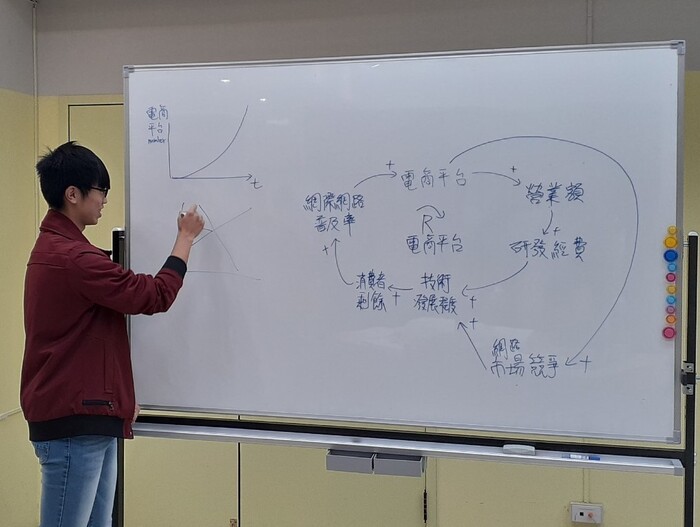 電商
平台
number
t
+
電商平台
+
營業額
網際網路
普及率
R
電商平台
+
研發經費
+
消費者
剩餘
+
技術
發展程度
+
+
網路
市場競爭
+